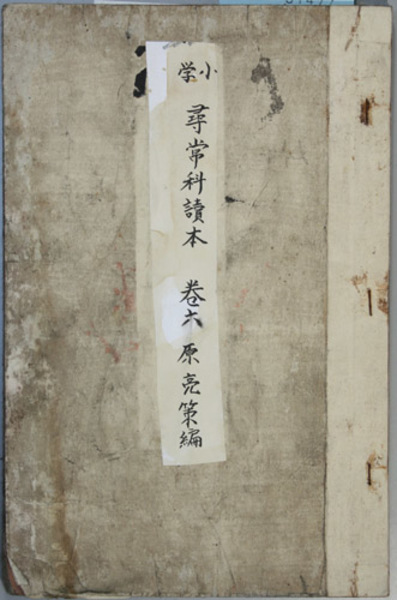 小学
尋常科讀本 巻六 原亮策編